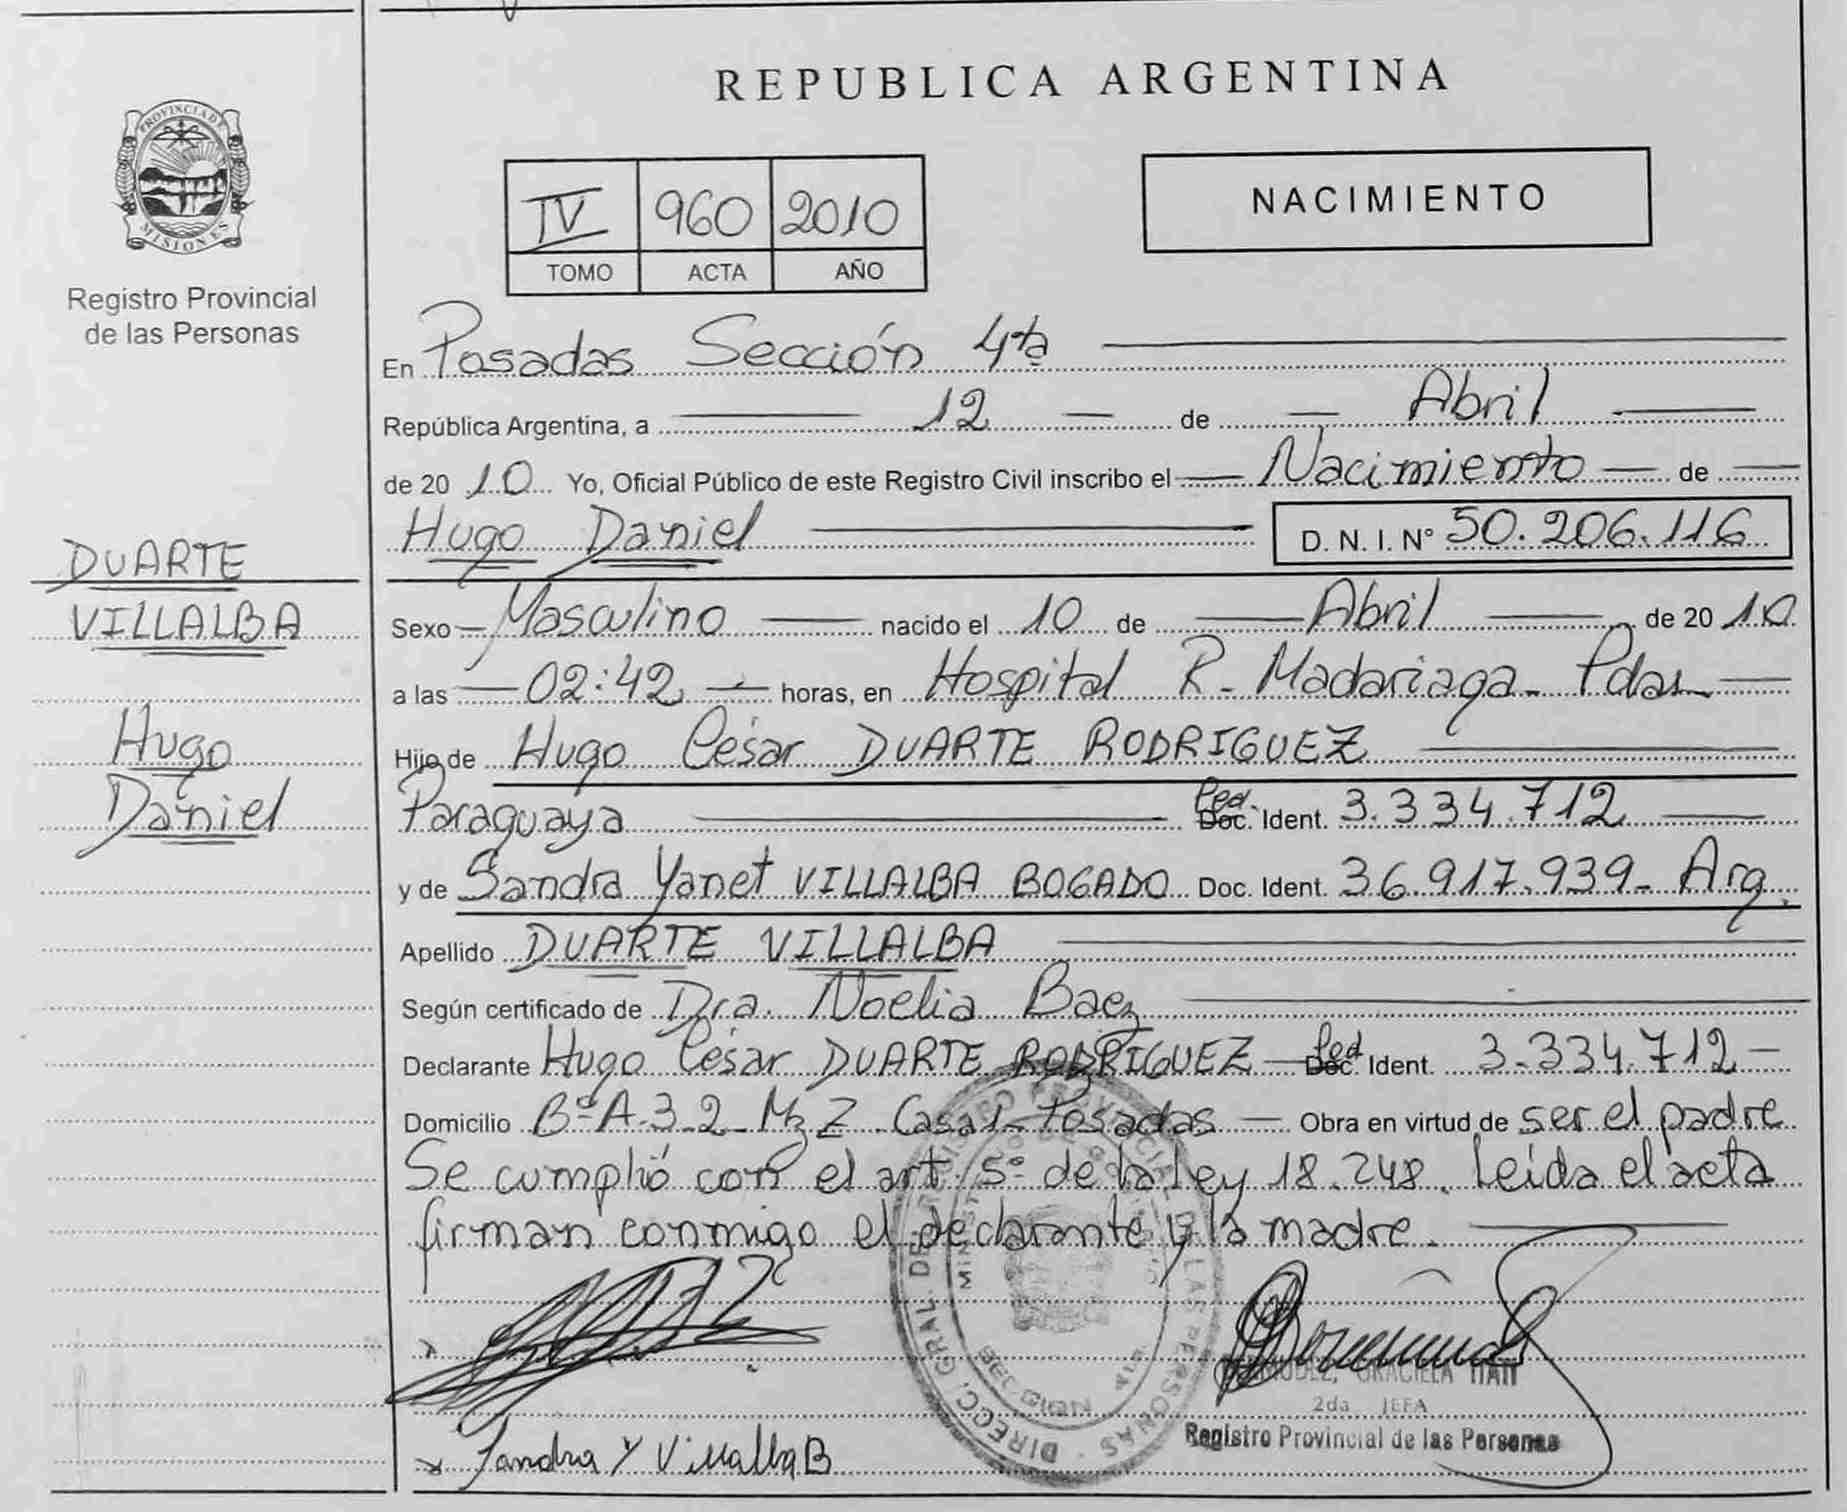 REPUBLICA ARGENTINA
PROVINCIA DE
MISIONES
Registro Provincial
de las Personas
IV 960 2010
TOMO ACTA AÑO
NACIMIENTO
En Posadas Sección 4ta
República Argentina, a 12 de Abril
de 2010 Yo, Oficial Público de este Registro Civil inscribo el Nacimiento de
Hugo Daniel D. N. I. N° 50.206.116
DUARTE
VILLALBA
Hugo
Daniel
Sexo Masculino nacido el 10 de Abril de 2010
a las 02:42 horas, en Hospital R. Madariaga - Pdas
Hijo de Hugo César DUARTE RODRIGUEZ
Paraguaya Ced. Doc. Ident. 3.334.712
y de Sandra Yanet VILLALBA BOGADO Doc. Ident. 36.917.939 - Arg.
Apellido DUARTE VILLALBA
Según certificado de Dra. Noelia Baez
Declarante Hugo César DUARTE RODRIGUEZ - Ced Doc. Ident. 3.334.712 -
Domicilio B° A.3.2 - Mz Z Casa 1 - Posadas - Obra en virtud de ser el padre
Se cumplió con el art. 5° de la ley 18.248. Leída el acta
firman conmigo el declarante y la madre.
Sandra Y Villalba B
GRACIELA ITATI
2da JEFA
Registro Provincial de las Personas
DIRECC. GRAL. DEL REGISTRO PROVINCIAL DE LAS PERSONAS